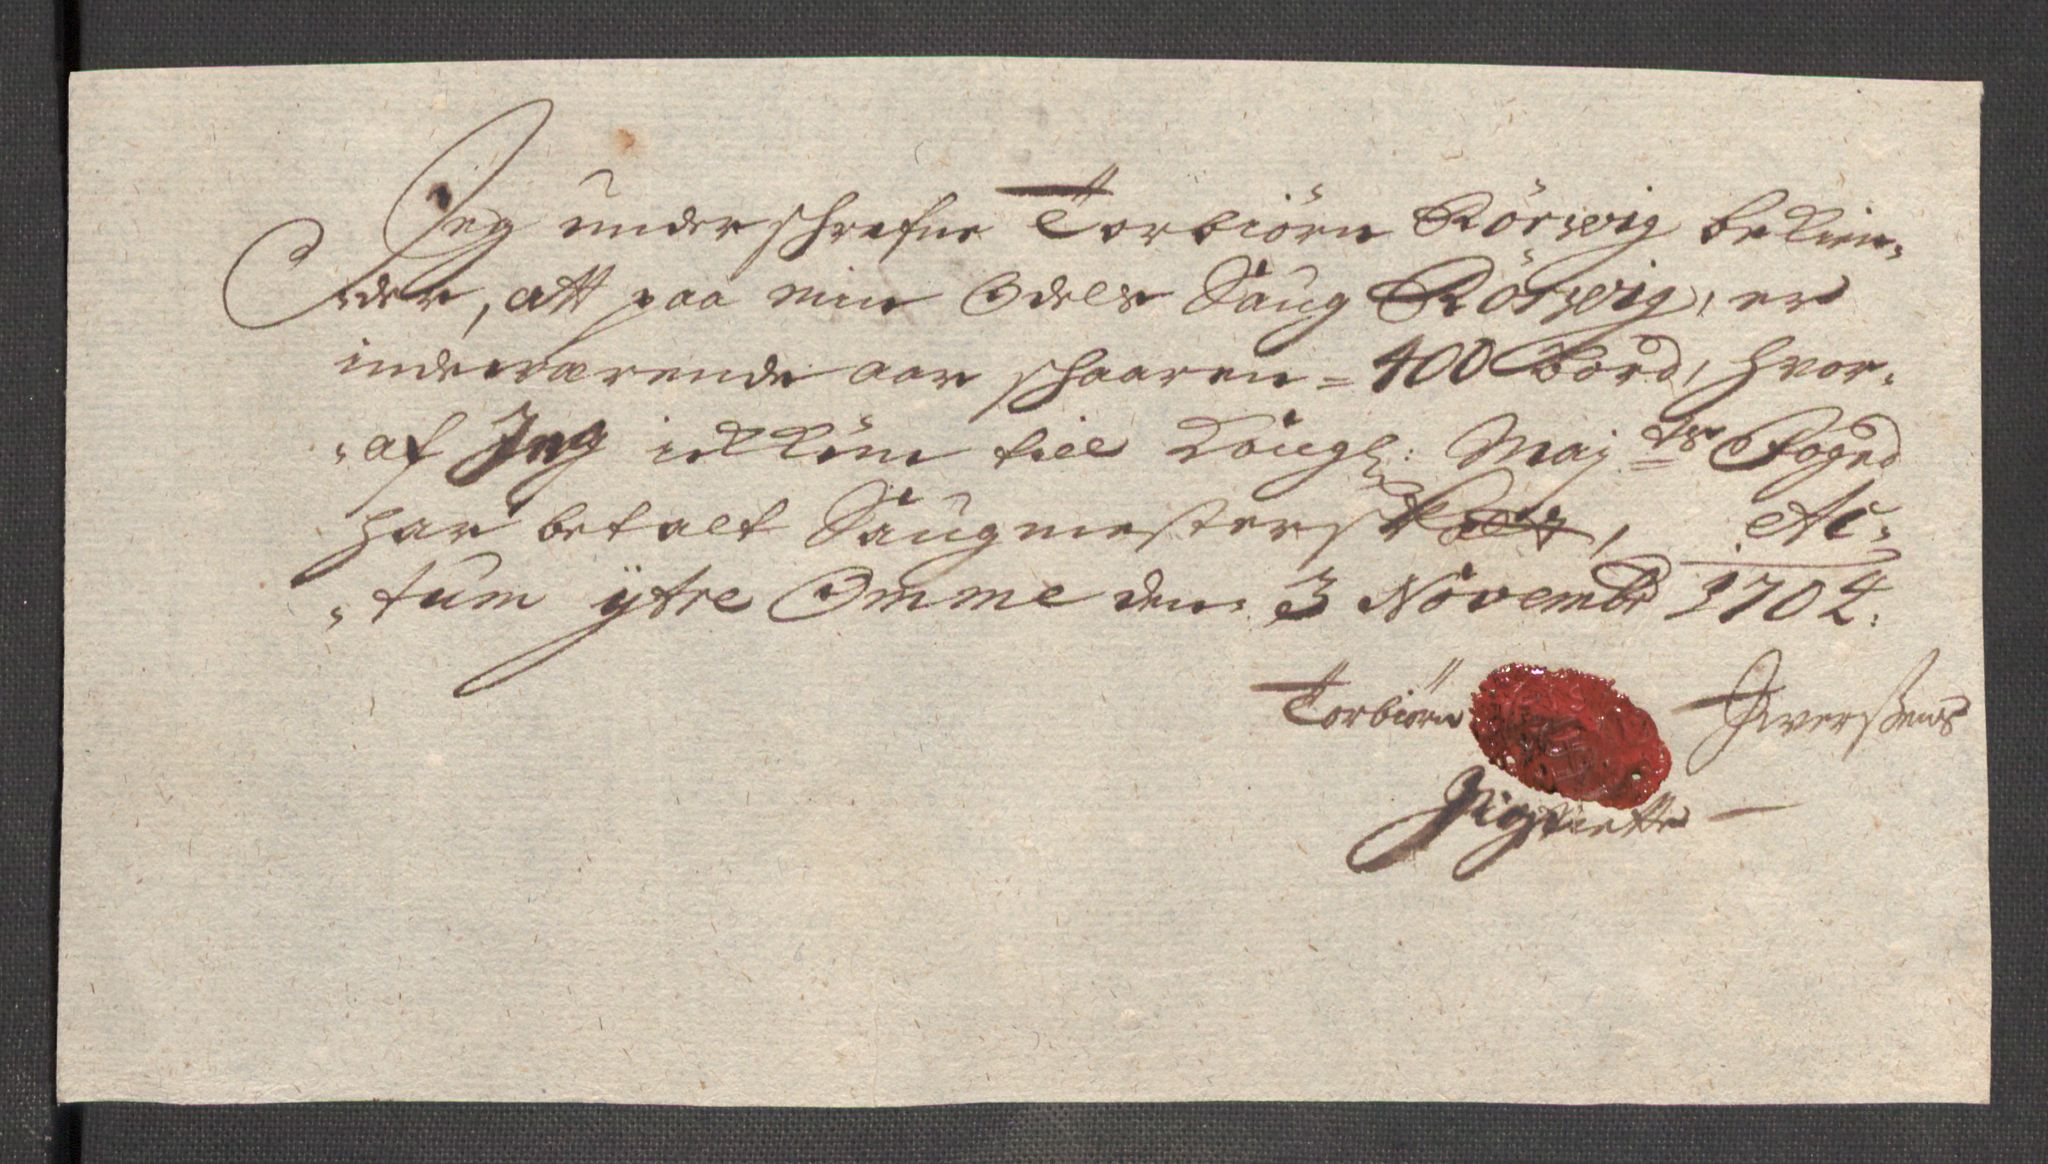 Jeg underschrefne Torbiörn Rörwig bekien-
der, att paa min Odels Saug Rörwig, er
indewærende aar schaaren = 400 Bord, hvor-
-af Jeg ickkun till Kongl: Maj:ts Foged
har betalt Saugmesterskat, Ac-
-tum ÿtre Omme den 3 Novembr 1704:
Torbiörn Iverßens
Signette